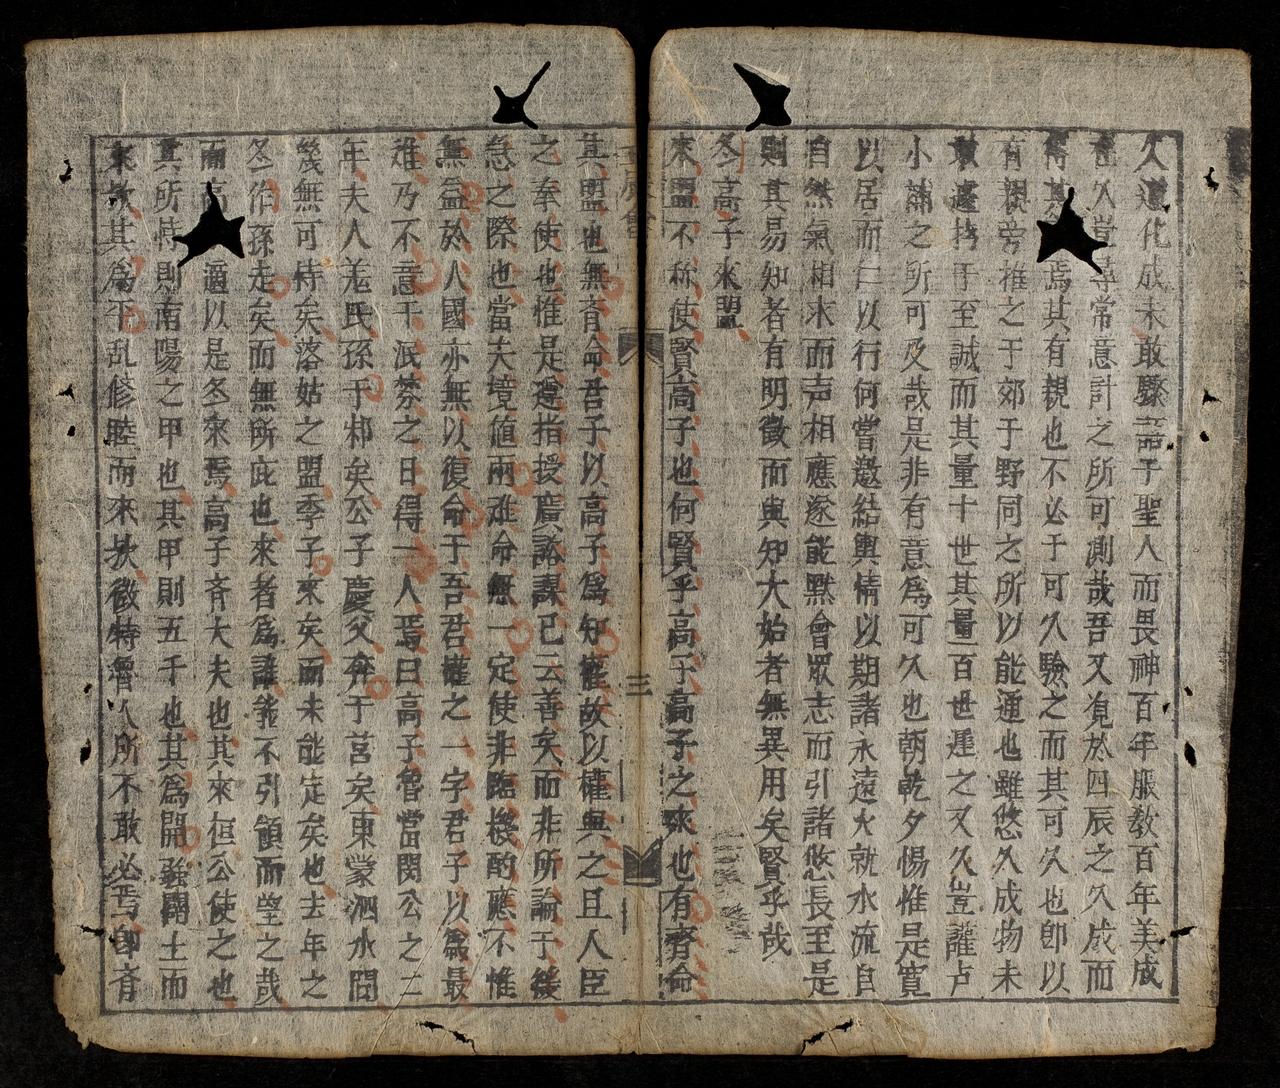 久道化成未敢驟語于聖人而畏神百年服教百年美成
在久豈尋常意計之所可測哉吾又覓於四辰之久成而
得其焉其有親也不必于可久驗之而其可久也卽以
有親旁推之于郊于野同之所以能通也雖悠久成物未
敢遽持于至誠而其量十世其量百世運之又久豈讙占
小補之所可及哉是非有意為可久也朝乾夕惕惟是寬
以居而仁以行何嘗邀結輿情以期諸永遠火就水流自
自然氣相求而声相應遂能默會眾志而引諸悠長至是
則其易知者有明徵而與知大始者無異用矣賢乎哉
冬高子來盟
來盟不称使賢高子也何賢乎高子高子之來也有齊命
其盟也無斉命君子以高子為知權故以權與之且人臣
之奉使也惟是遵指授廣諮諏已云善矣而非所論于緩
急之際也當夫境值兩难命無一定使非臨機酌應不惟
無益於人國亦無以復命于吾君權之一字君子以為最
难乃不意于泯棼之日得一人焉曰高子魯當閔公之二
年夫人姜氏孫于邾矣公子慶父奔于莒矣東蒙泗水間
幾無可恃矣落姑之盟季子來矣而未能定矣也去年之
冬作孫走矣而無所庇也來者為誰能不引領而望之哉
而高適以是冬來焉高子斉大夫也其來桓公使之也
其所恃則南陽之甲也其甲則五千也其為開強闢土而
來抑其為平乱修睦而來抉微特魯人所不敢必焉卽斉
三